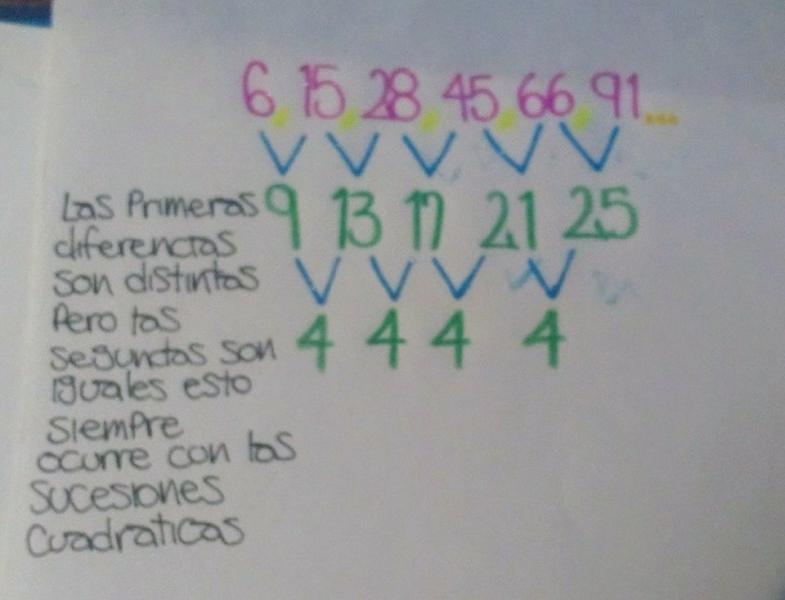 6, 15, 28, 45, 66, 91...
9 13 17 21 25
4 4 4 4
Las Primeras
diferencias
son distintas
Pero las
segundas son
iguales esto
siempre
ocurre con las
sucesiones
cuadraticas